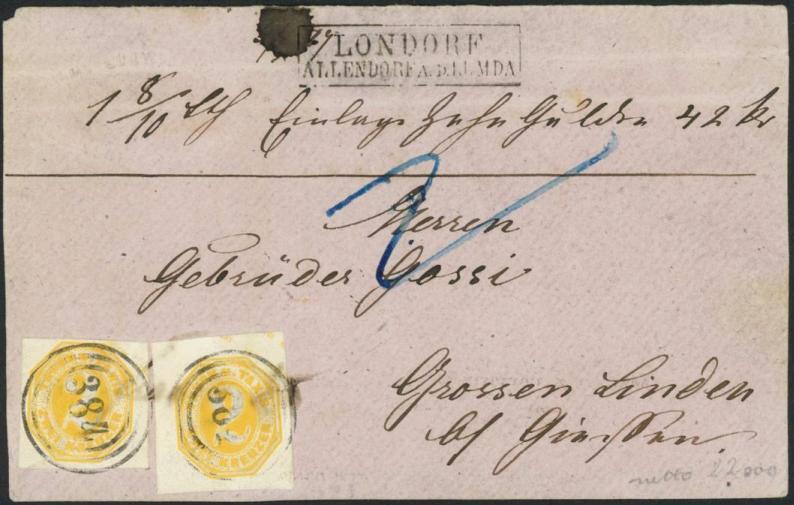 LONDORF
ALLENDORF A. D. LUMDA
1 8/10 Lth Einlage Zehn Gulden 42 kr
Herren
Gebrüder Gossi
Grossen Linden
bf Giessen.
384
2
2
netto 22000